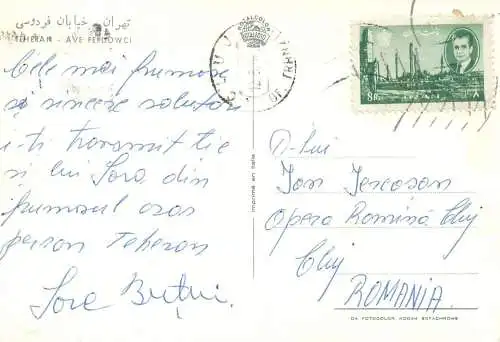 تهران - خیابان فردوسی
TEHERAN - AVE FERDOWCI
Cele mai frumoase
și sincere salutări
i-ți transmit ție
și lui Sora din
frumosul oraș
persan Teheran
ROTALCOLOR
TEHRAN
8 RLS.
Imprimé en Italie
D-lui
Ion
Opera Romînă Cluj
Cluj
ROMANIA.
DA FOTOCOLOR KODAK EKTACHROME